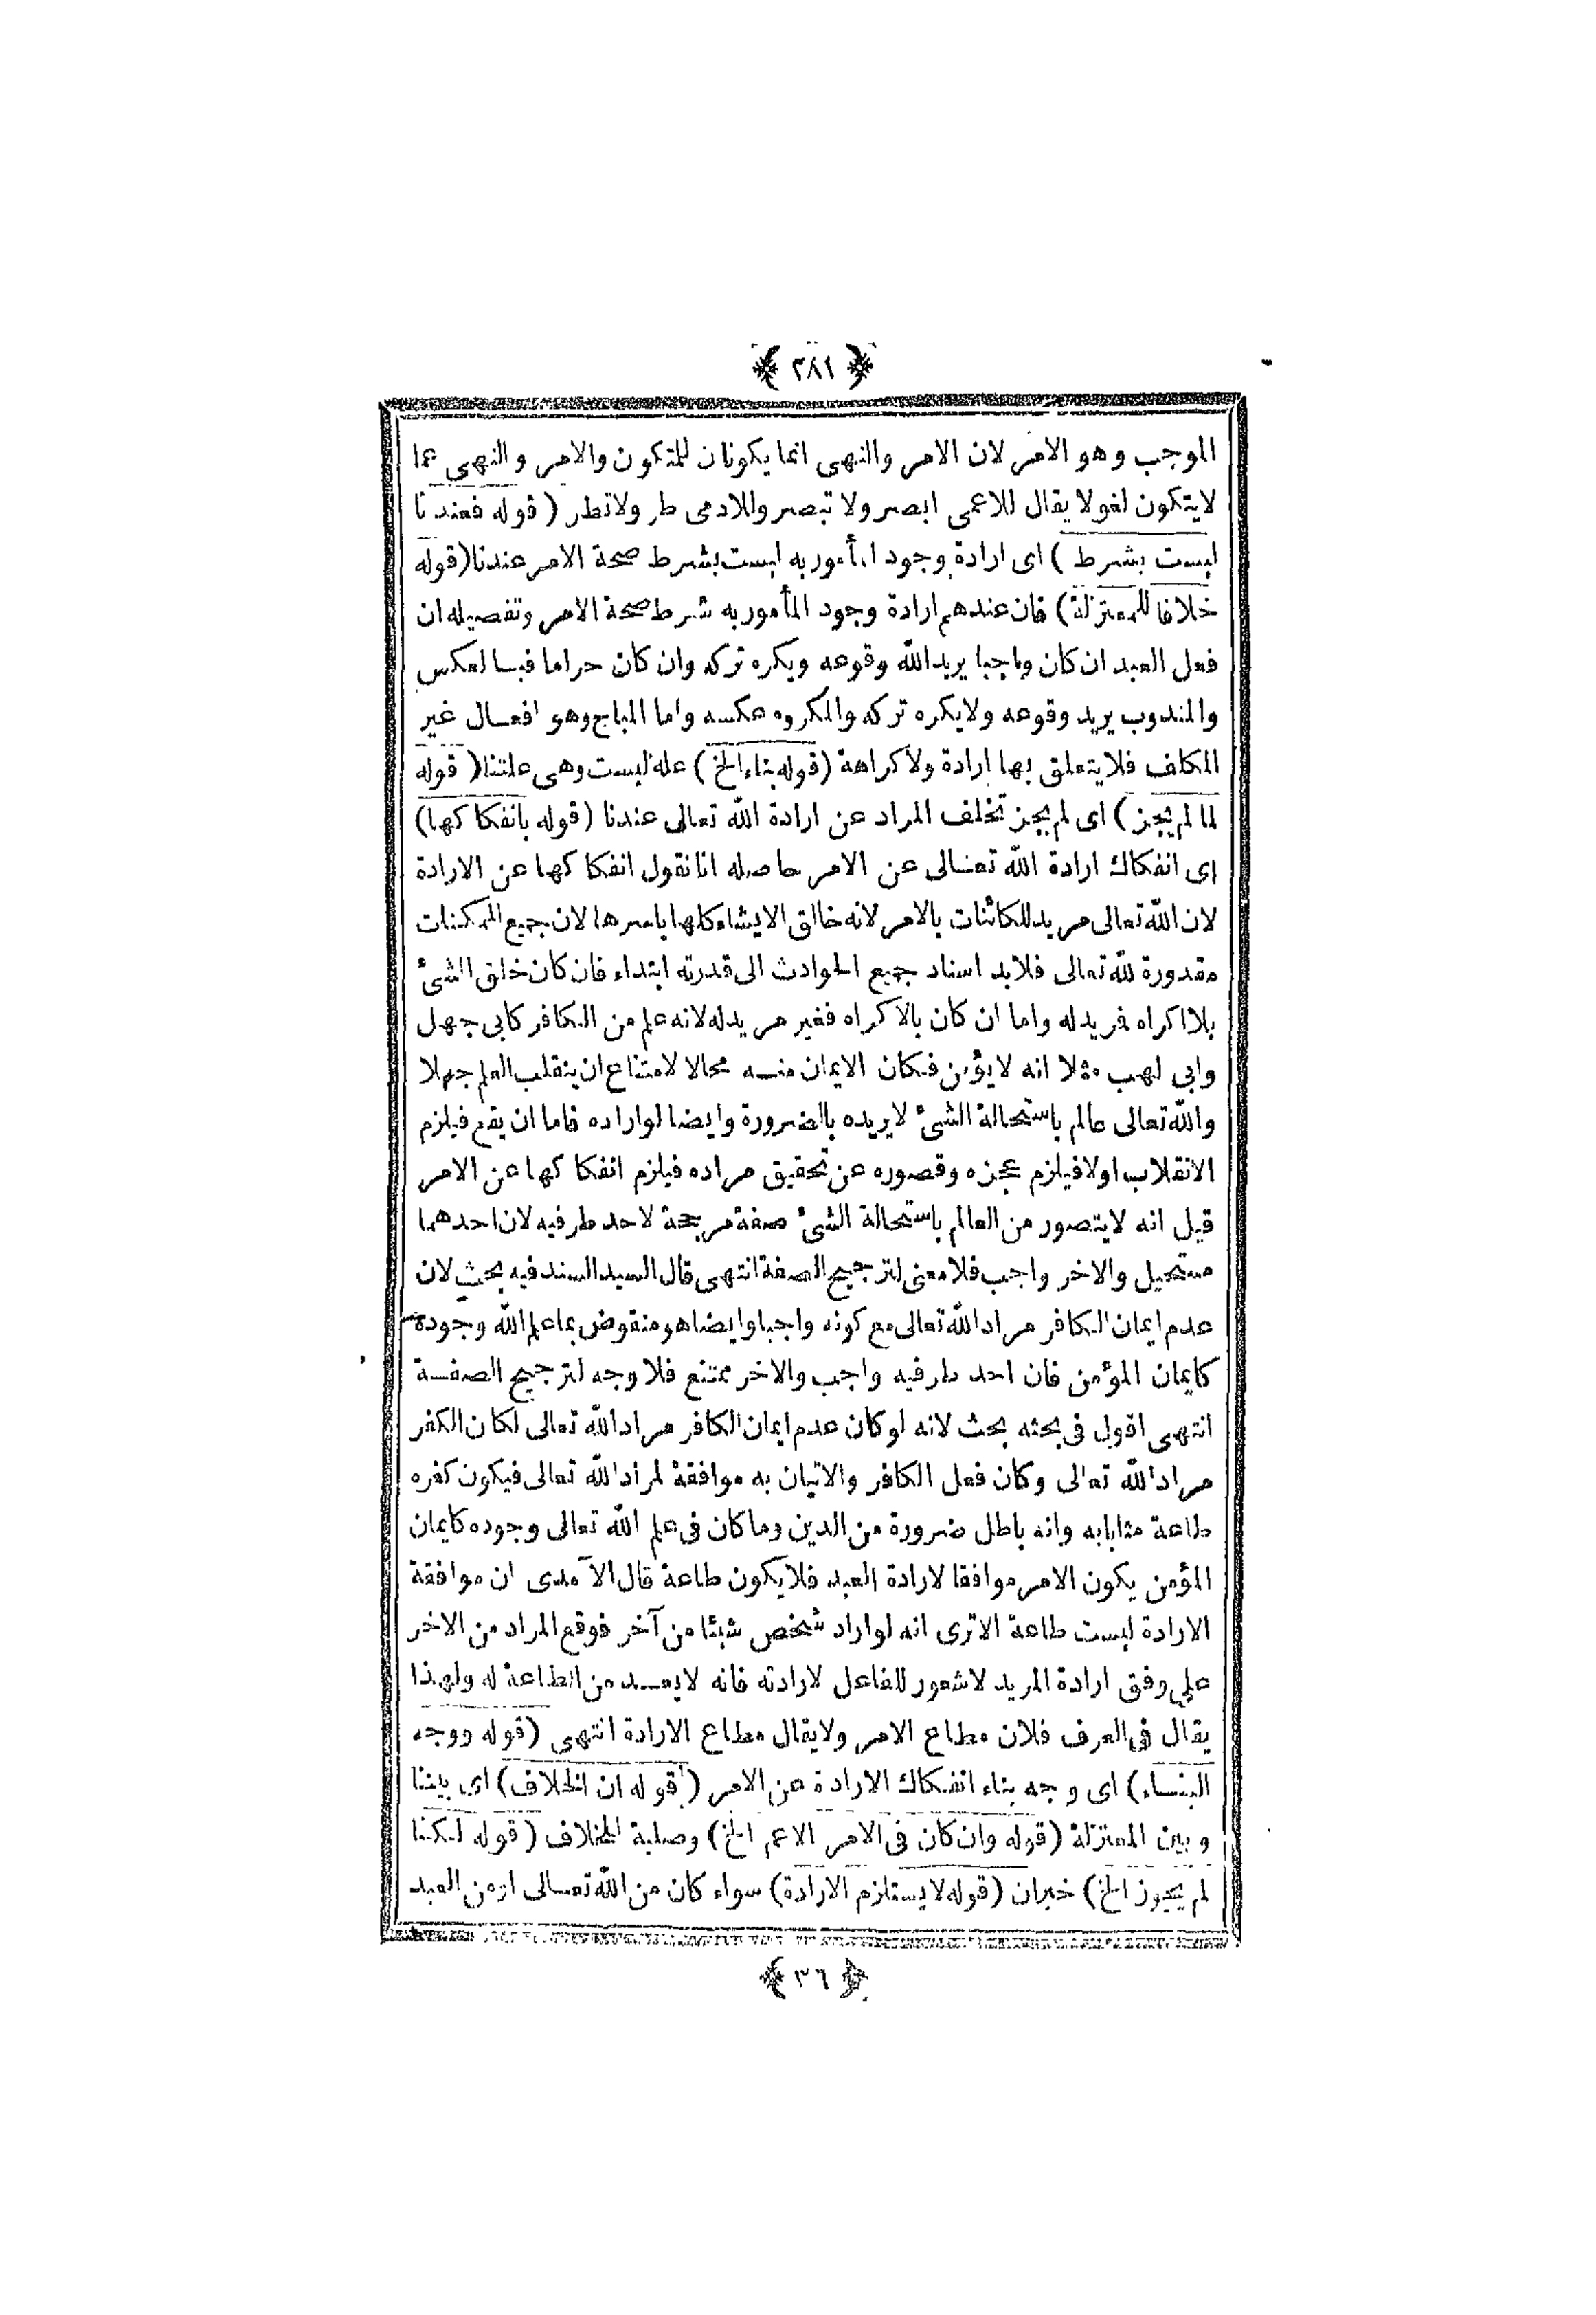 ﴿ ٢٨١ ﴾
الموجب وهو الامر لان الامر والنهى انما يكونان للمتكون والامر والنهى عما
لايتكون لغو لا يقال للاعمى ابصر ولا تبصر وللادمى طر ولاتطر ( قوله فعندنا
ليست بشرط ) اى ارادة وجود المأمور به ليست بشرط صحة الامر عندنا ( قوله
خلافا للمعتزلة ) فان عندهم ارادة وجود المأمور به شرط صحة الامر وتفصيله ان
فعل العبد ان كان واجبا يريد الله وقوعه ويكره تركه وان كان حراما فبالعكس
والمندوب يريد وقوعه ولايكره تركه والمكروه عكسه واما المباح وهو افعال غير
المكلف فلا يتعلق بها ارادة ولاكراهة ( قوله بناء الخ ) علة ليست وهى علتنا ( قوله
لما لم يجز ) اى لم يجز تخلف المراد عن ارادة الله تعالى عندنا ( قوله بانفكاكها )
اى انفكاك ارادة الله تعالى عن الامر حاصله انا نقول انفكاكها عن الارادة
لان الله تعالى مريد للكائنات بالامر لانه خالق الايشاء كلها باسرها لان جميع الممكنات
مقدورة لله تعالى فلابد اسناد جميع الحوادث الى قدرته ابتداء فان كان خلق الشئ
بلا اكراه فريد له واما ان كان بالاكراه فغير مريد له لانه علم من الكافر كابى جهل
وابى لهب مثلا انه لا يؤمن فكان الايمان منه محالا لامتناع ان ينقلب العلم جهلا
والله تعالى عالم باستحالة الشئ لايريده بالضرورة وايضا لو اراده فاما ان يقع فيلزم
الانقلاب اولا فيلزم عجزه وقصوره عن تحقيق مراده فيلزم انفكاكها عن الامر
قيل انه لا يتصور من العالم باستحالة الشئ صفة مرجحة لاحد طرفيه لان احدهما
مستحيل والاخر واجب فلا معنى لترجيح الصفة انتهى قال السيد السند فيه بحث لان
عدم ايمان الكافر مراد الله تعالى مع كونه واجبا وايضا هو منقوض بما علم الله وجوده
كايمان المؤمن فان احد طرفيه واجب والاخر ممتنع فلا وجه لترجيح الصفة
انتهى اقول فى بحثه بحث لانه لو كان عدم ايمان الكافر مراد الله تعالى لكان الكفر
مراد الله تعالى وكان فعل الكافر والاتيان به موافقة لمراد الله تعالى فيكون كفره
طاعة مثابا به وانه باطل ضرورة من الدين وما كان فى علم الله تعالى وجوده كايمان
المؤمن يكون الامر موافقا لارادة العبد فلا يكون طاعة قال الآمدى ان موافقة
الارادة ليست طاعة الاترى انه لو اراد شخص شيئا من آخر فوقع المراد من الاخر
على وفق ارادة المريد لاشعور للفاعل لارادته فانه لايعد من الطاعة له ولهذا
يقال فى العرف فلان مطاع الامر ولايقال مطاع الارادة انتهى ( قوله ووجه
البناء ) اى وجه بناء انفكاك الارادة عن الامر ( قوله ان الخلاف ) اى بيننا
وبين المعتزلة ( قوله وان كان فى الامر الاعم الخ ) وصلية للخلاف ( قوله لكنا
لم يجوز الخ ) خبران ( قوله لا يستلزم الارادة ) سواء كان من الله تعالى او من العبد
﴿ ٣٦ ﴾